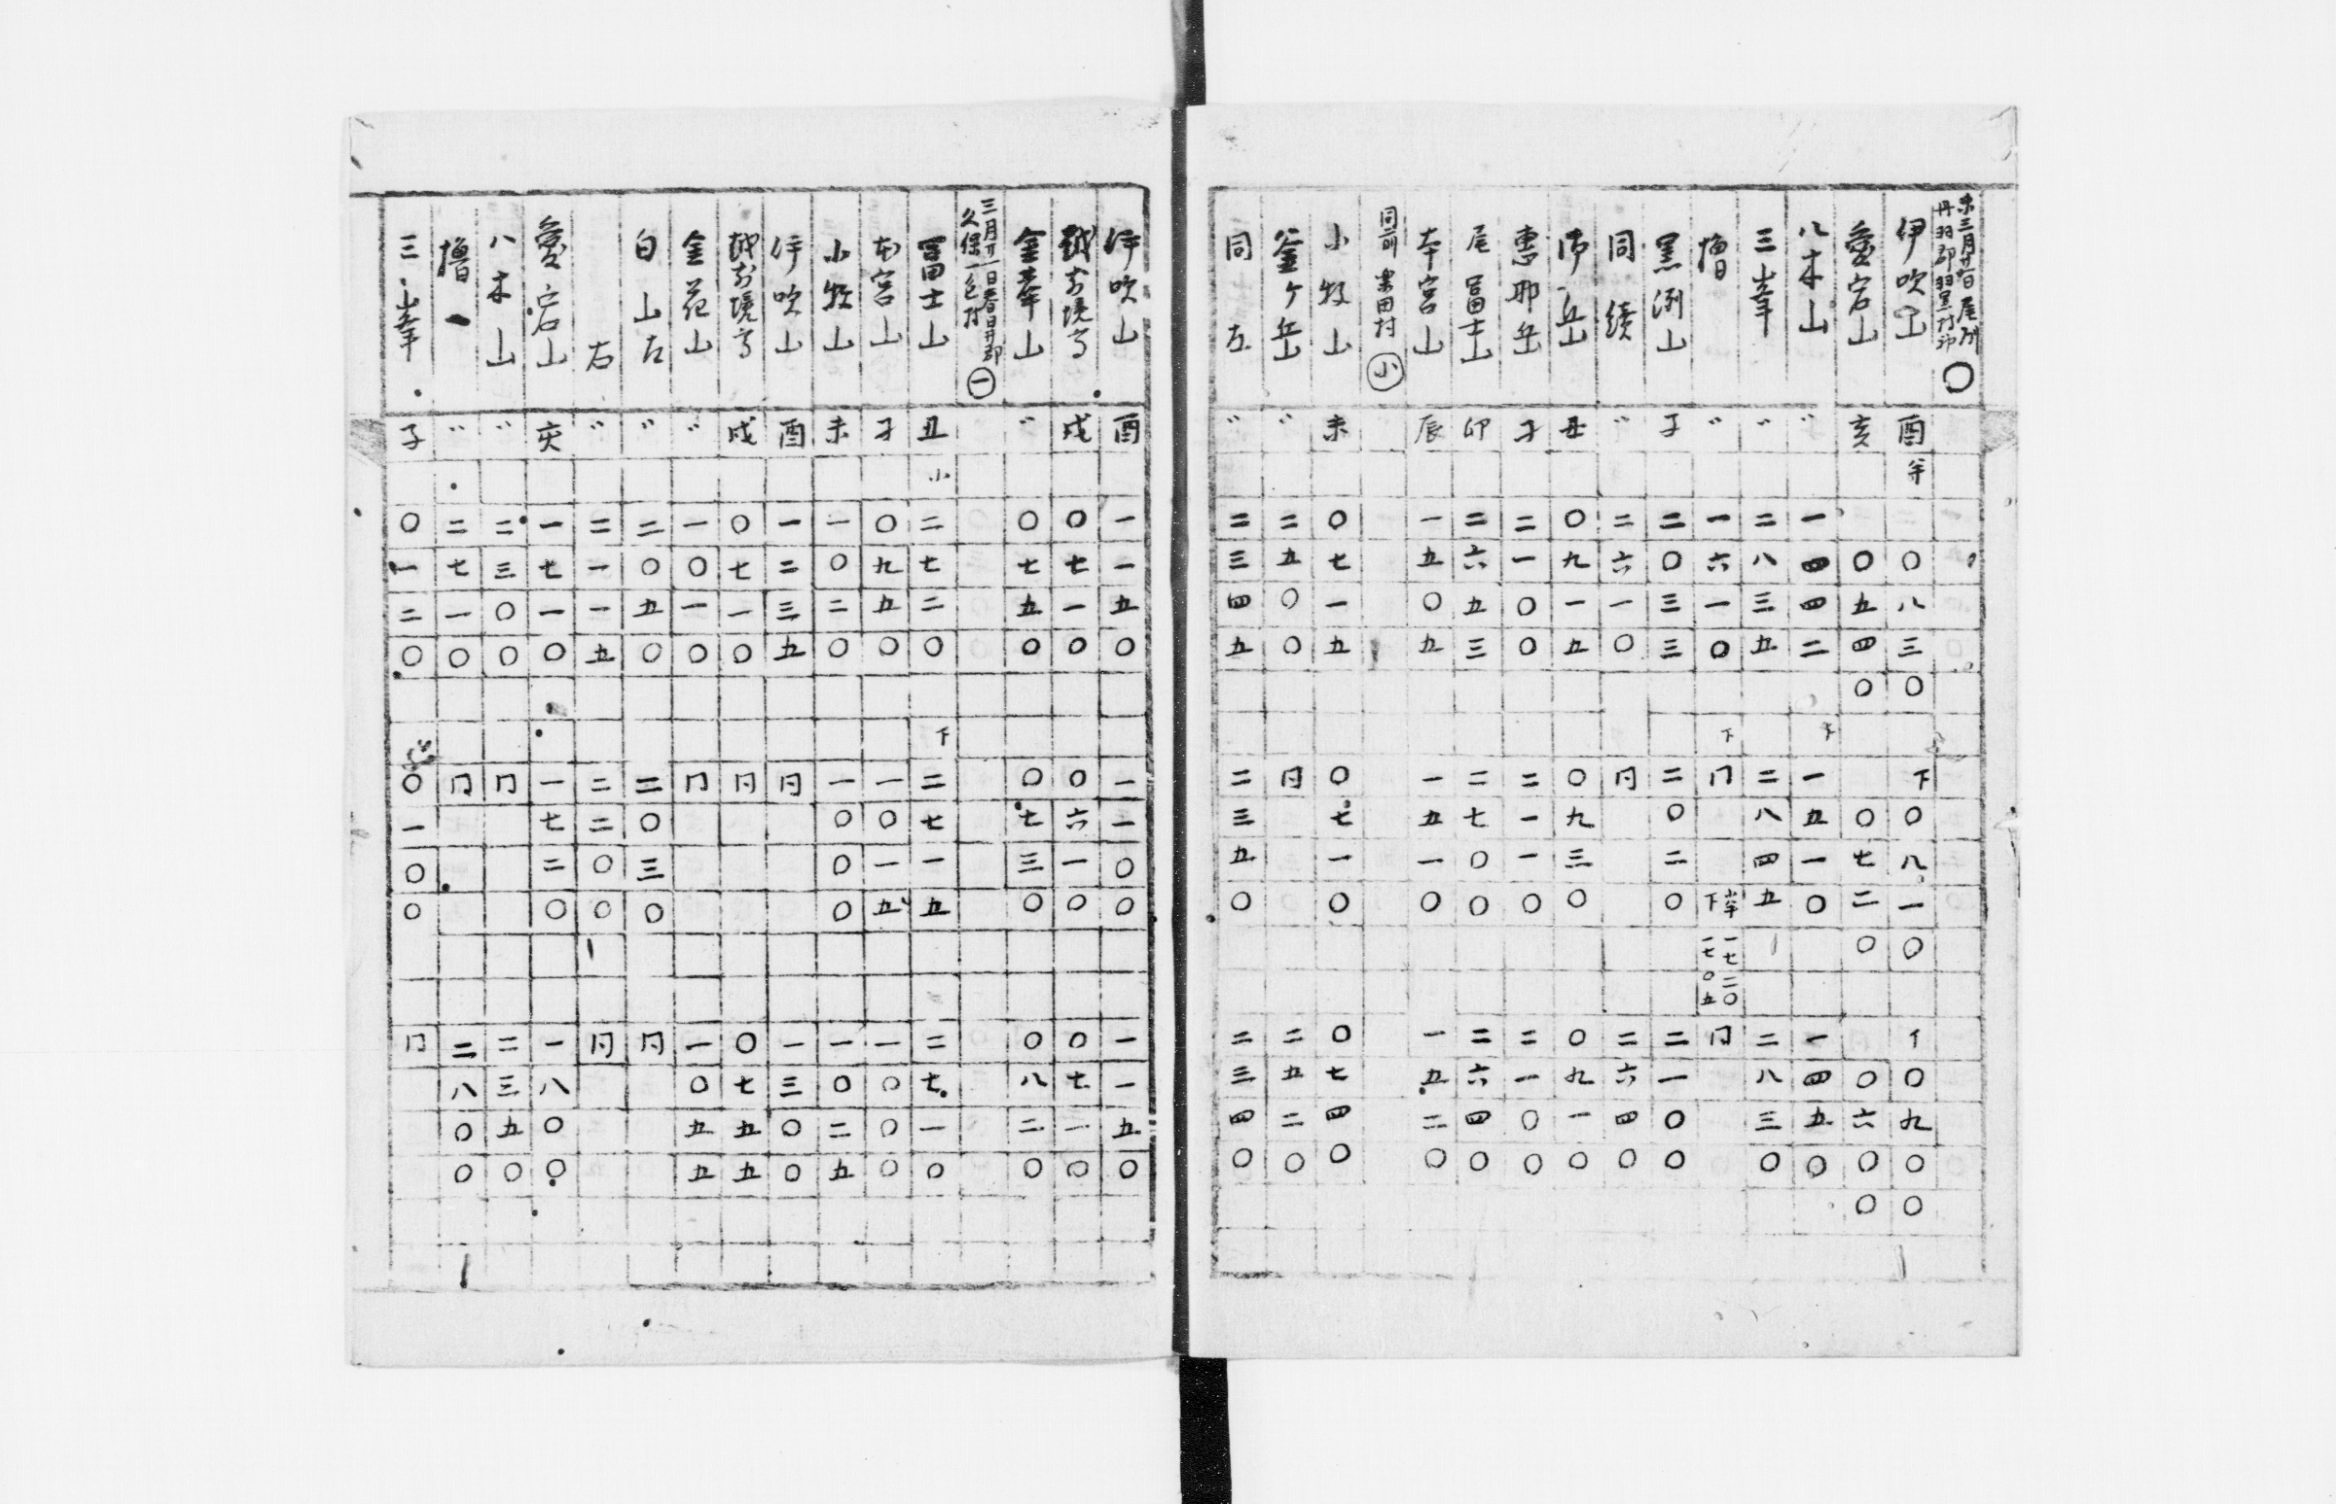 未三月廿日 尾州
丹羽郡羽黒村印 〇
伊吹山 酉 半 〇八三〇 下〇八一〇 〇九〇〇
愛宕山 亥 〇五四〇 〇七二〇 〇六〇〇
八木山 〃 一四四二 下 一五一〇 一四五〇
三峯 〃 二八三五 二八四五 二八三〇
増 〃 一六一〇 下 同 半 一七二〇 下 一七〇五 同
黒渕山 子 二〇三三 二〇二〇 二一〇〇
同 続 〃 二六一〇 同 二六四〇
御岳 丑 〇九一五 〇九三〇 〇九一〇
恵那岳 寅 二一〇〇 二一一〇 二一〇〇
尾冨士山 卯 二六五三 二七〇〇 二六四〇
本宮山 辰 一五〇五 一五一〇 一五二〇
同所 楽田村 小
小牧山 未 〇七一五 〇七一〇 〇七四〇
釜ケ岳 〃 二五〇〇 同 二五二〇
同 左 〃 二三四五 二三五〇 二三四〇
伊吹山 酉 一一五〇 一一〇〇 一一五〇
越前境 戌 〇七一〇 〇六一〇 〇七一〇
金華山 〃 〇七五〇 〇七三〇 〇八二〇
三月廿一日春日井郡
久保一色村 一
冨士山 丑 小 二七二〇 下 二七一五 二七一〇
本宮山 寅 〇九五〇 一〇一五 一〇〇〇
小牧山 未 一〇二〇 一〇〇〇 一〇二五
伊吹山 酉 一二三五 同 一三〇〇
越前境 戌 〇七一〇 同 〇七五五
金花山 〃 一〇一〇 同 一〇五五
白山左 〃 二〇五〇 二〇三〇 同
右 〃 二一一五 二二〇〇 同
愛宕山 亥 一七一〇 一七二〇 一八〇〇
八木山 〃 二三〇〇 同 二三五〇
増一 〃 二七一〇 同 二八〇〇
三峯 子 〇一二〇 〇一〇〇 同